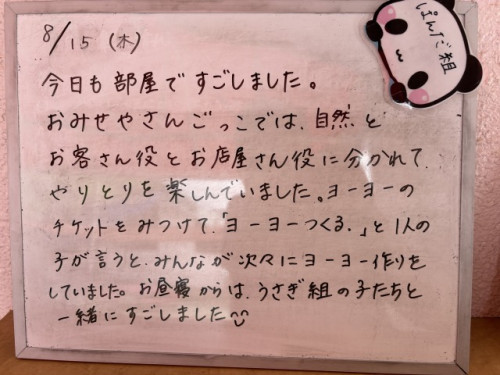 8/15 (木)
ぱんだ組
今日も部屋ですごしました。
おみせやさんごっこでは、自然と
お客さん役とお店屋さん役に分かれて、
やりとりを楽しんでいました。ヨーヨーの
チケットをみつけて、「ヨーヨーつくる。」と1人の
子が言うと、みんなが次々にヨーヨー作りを
していました。お昼寝からは、うさぎ組の子たちと
一緒にすごしました